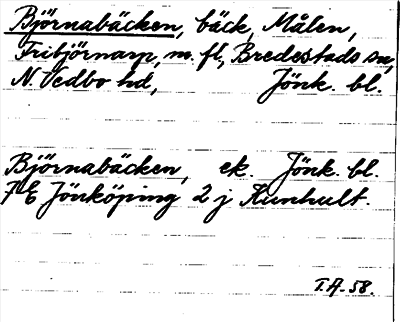 Björnabäcken, bäck, Målen,
Fribjörnarp, m. fl, Bredestads sn,
N. Vedbo hd, Jönk. bl.
Björnabäcken, ek. Jönk. bl.
7 E Jönköping 2 j Kunhult.
T.A. 58.